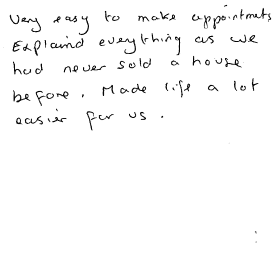 Very easy to make appointmets
Explaind everything as we
had never sold a house
before. Made life a lot
easier for us.